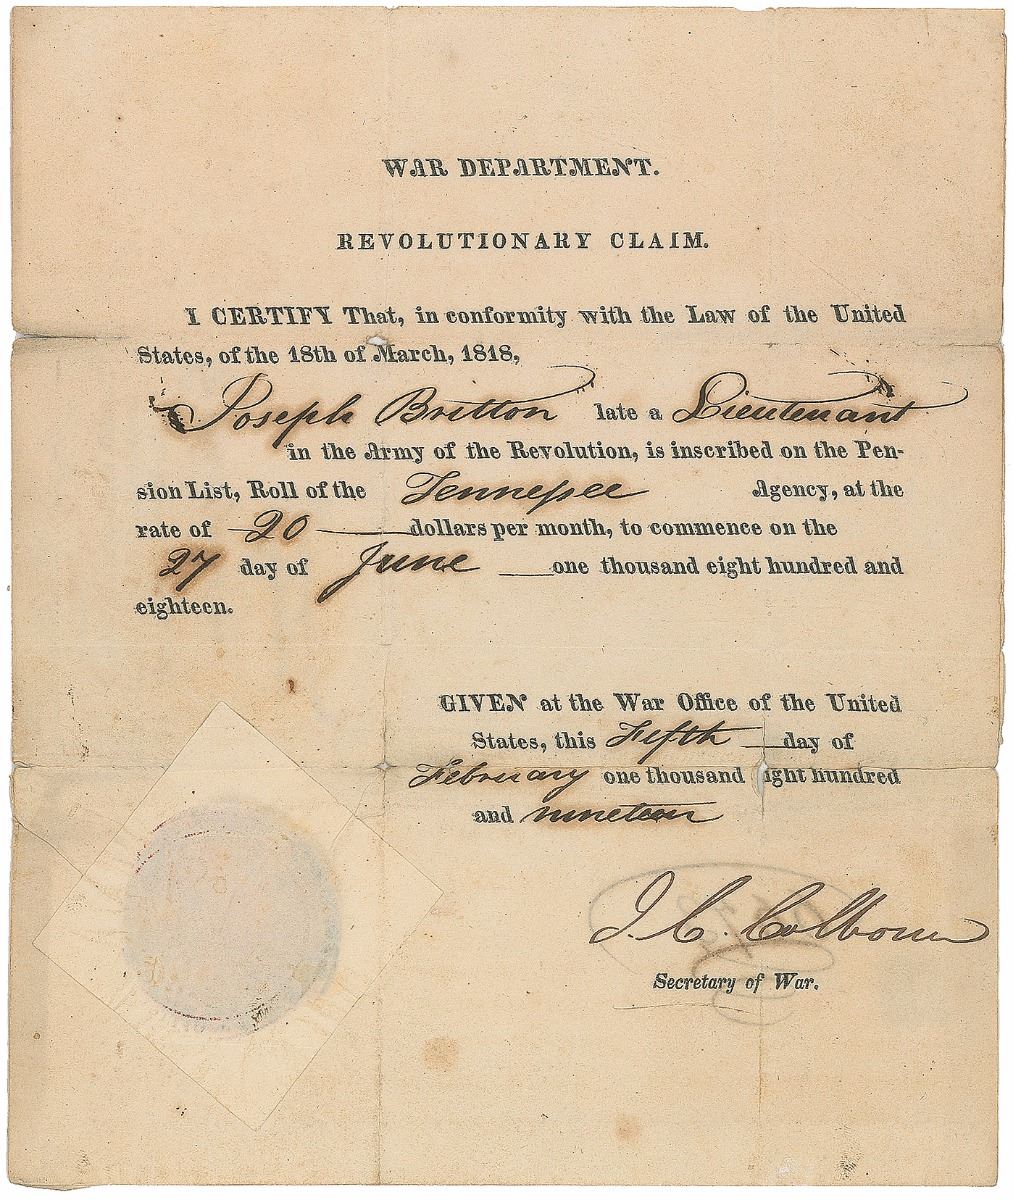 WAR DEPARTMENT.
REVOLUTIONARY CLAIM.
I CERTIFY That, in conformity with the Law of the United
States, of the 18th of March, 1818,
Joseph Britton late a Lieutenant
in the Army of the Revolution, is inscribed on the Pen-
sion List, Roll of the Tennessee Agency, at the
rate of 20 dollars per month, to commence on the
27 day of June one thousand eight hundred and
eighteen.
GIVEN at the War Office of the United
States, this Fifth day of
February one thousand eight hundred
and nineteen
J. C. Calhoun
Secretary of War.